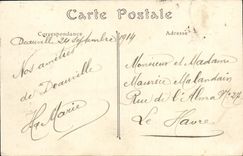 Carte Postale
Correspondance
Adresse
Deauville 24 septembre 1914
Nos amitiés
de Deauville
Marie
Monsieur et Madame
Maurice Malandain
Rue de l'Alma N° 27
Le Havre